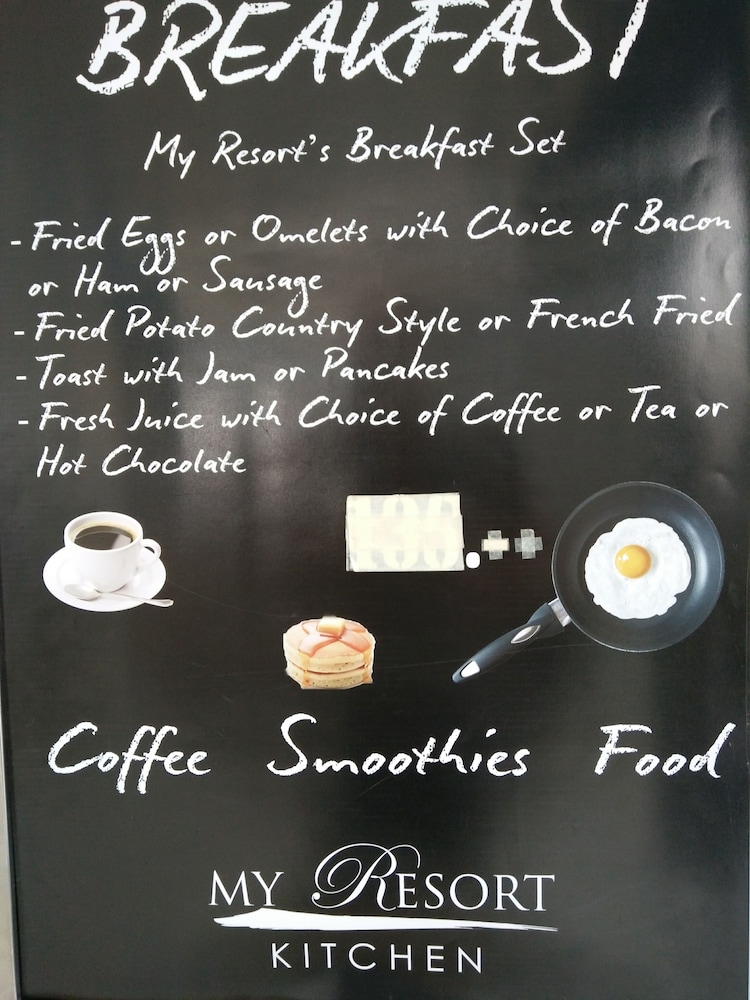 BREAKFAST
My Resort's Breakfast Set
- Fried Eggs or Omelets with Choice of Bacon
or Ham or Sausage
- Fried Potato Country Style or French Fried
- Toast with Jam or Pancakes
- Fresh Juice with Choice of Coffee or Tea or
Hot Chocolate
Coffee Smoothies Food
MY RESORT
KITCHEN